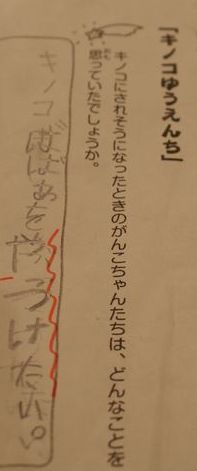 「キノコゆうえんち」
キノコにされそうになったときのがんこちゃんたちは、どんなことを
思っていたでしょうか。
キノコばばぁをやっつけたい。